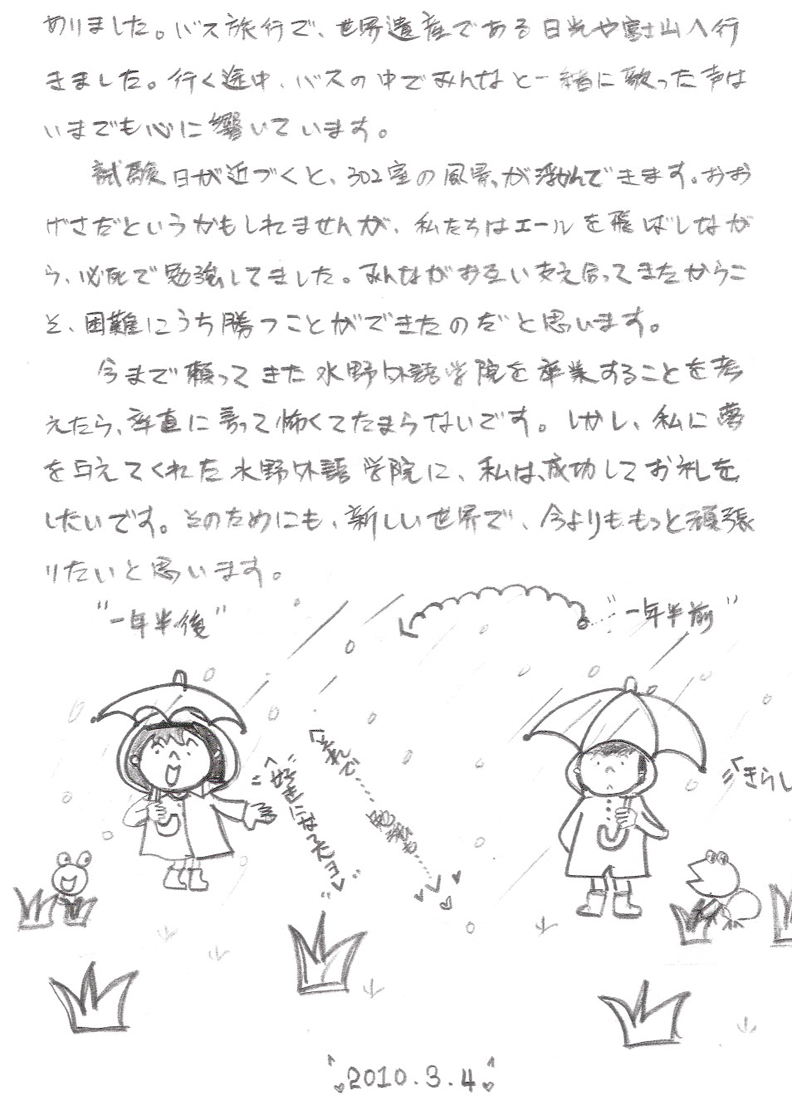 ありました。バス旅行で、世界遺産である日光や富士山へ行
きました。行く途中、バスの中でみんなと一緒に歌った声は
いまでも心に響いています。
試験日が近づくと、302室の風景が浮かんできます。おお
げさだというかもしれませんが、私たちはエールを飛ばしなが
ら、必死で勉強してました。みんながお互い支え合ってきたからこ
そ、困難にうち勝つことができたのだと思います。
今まで頼ってきた水野外語学院を卒業することを考
えたら、率直に言って怖くてたまらないです。しかし、私に夢
を与えてくれた水野外語学院に、私は、成功してお礼を
したいです。そのためにも、新しい世界で、今よりももっと頑張
りたいと思います。
"一年半後"
"一年半前"
「きらい
「それで……勉強も……
「好きになったヨ」
2010.3.4